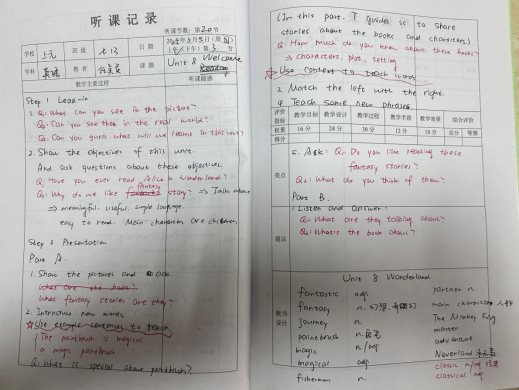 听课记录
听课节数: 第20节
学校
班级
七13
日期
学科
英语
教者
课题
Unit 8 Welcome
Reading
教学主要过程
听课随感
Step 1 Lead-in
1. Q: What can you see in the picture?
Q: Can you see them in the real world?
Q: Can you guess what will we learn in this unit?
2. Show the objectives of this unit.
And ask questions about these objectives.
Q: Have you ever read Alice in Wonderland?
Q: Why do we like fantasy story? ⇒ Talk about
⇒ meaningful. useful. simple language.
easy to read. Main characters are children.
Step 2 Presentation
Part A.
1. Show the pictures and ask.
What are the books?
What fantasy stories are they?
2. Introduce new words.
☆Use example sentences to teach
The paintbrush is magical
a magic paintbrush
Q: What is special about paintbrush?
(In this part, T guides Ss to share
stories about the books and characters.)
Q: How much do you know about these books?
⇒ characters, plot, setting
☆Use context to teach words
3. Match the left with the right.
4. Teach some new phrases.
评价指标
教学目标
教学设计
教学过程
教学手段
教学效果
综合评价
权重
16分
24分
30分
12分
18分
总分
等第
得分
亮点
5. Ask: Q1: Do you like reading these
fantasy stories?
Q2: What do you think of them?
Part B.
建议
1. Listen and answer.
Q1: What are they talking about?
Q2: What's the book about?
板书设计
Unit 8 Wonderland
fantastic adj.
partner n.
fantasy n.
main character 人物
journey n.
The Monkey King
paintbrush n. 画笔
master
magic n./adj.
magical adj
Neverland
fisherman n.
classic n/adj
classical adj